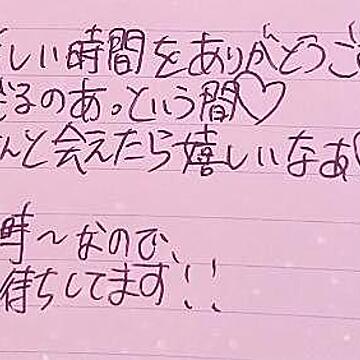 しい時間をありがとうご
ぎるのあっという間♡
んと会えたら嬉しいなあ♡
時〜なので、
待ちしてます!!